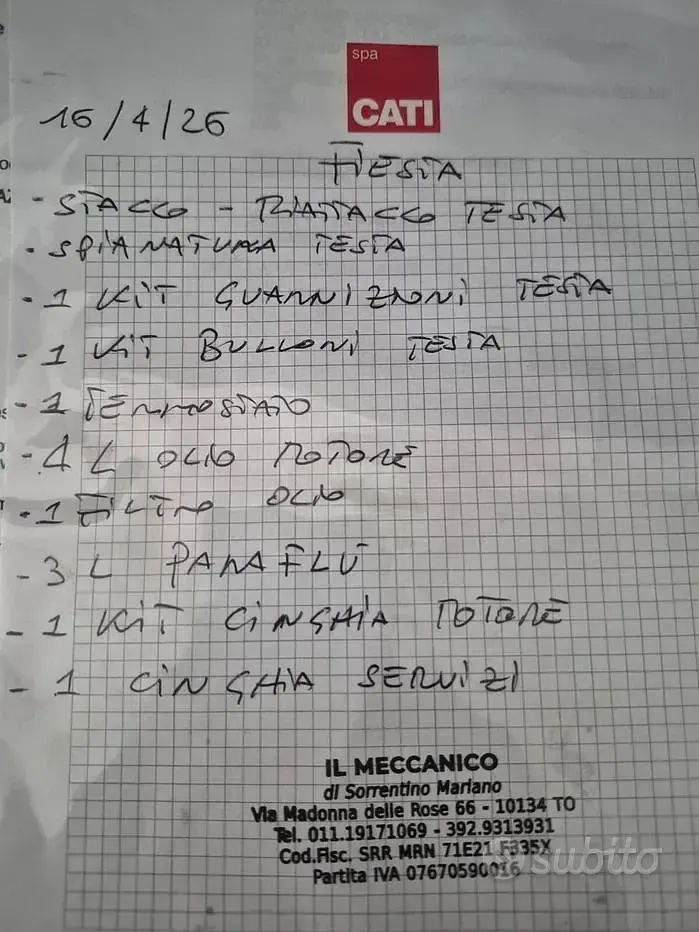 spa
CATI
16/4/26
FIESTA
- STACCO - RIATTACCO TESTA
- SPIANATURA TESTA
- 1 KIT GUARNIZIONI TESTA
- 1 KIT BULLONI TESTA
- 1 TERMOSTATO
- 4 L OLIO MOTORE
- 1 FILTRO OLIO
- 3 L PARAFLU
- 1 KIT CINGHIA MOTORE
- 1 CINGHIA SERVIZI
IL MECCANICO
di Sorrentino Mariano
Via Madonna delle Rose 66 - 10134 TO
Tel. 011.19171069 - 392.9313931
Cod.Fisc. SRR MRN 71E21 F335X
Partita IVA 07670590016
subito